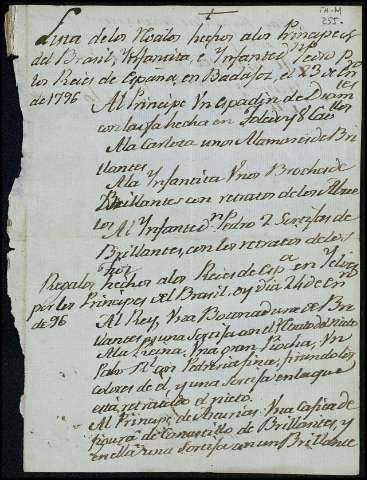 FH-M
255-
Lista de los Regalos hechos a los Principes
del Brasil, Ynfantita, e Ynfante dn Pedro pr
los Reies de España, en Badajoz el 23 de En.ro
de 1796
Al Principe Vn espadin de Diamtes
con la oja hecha en Toledo y 8 Caballos
A la Carlota unos Alamares de Bri
llantes
A la Ynfantita Vnos Broches de
Brillantes con retratos de los Abue
los
Al Ynfante dn Pedro 2 Sortijas de
Brillantes, con los retratos de los
Regalos hechos a los Reies de Espa en Yelves
por los Principes del Brasil, oy dia 24 de Enro
de 96
Al Rey, Vna Botonadura de Bri
llantes y una Sortija con el retrato del nieto
A la Reina; Vna gran Piocha; Vn
Pabo Rl con Pedreria fina, fingendo los
colores de el, y una Sortija en la que
está retratado el nieto.
Al Principe de Asturias Vna Cajita de
figura de Canastillo de Brillantes, y
en ella una Sortija con un Brillante